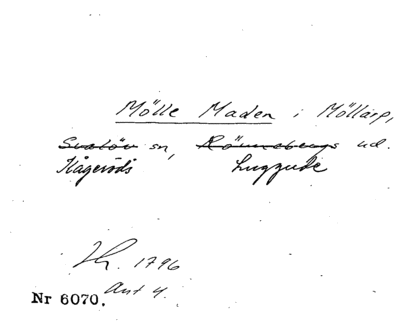 Mölle Maden i Möllarp,
Svalöv sn, Rönnebergs hd.
Kågeröds Luggude
Kr. 1796
Ant 4.
Nr 6070.